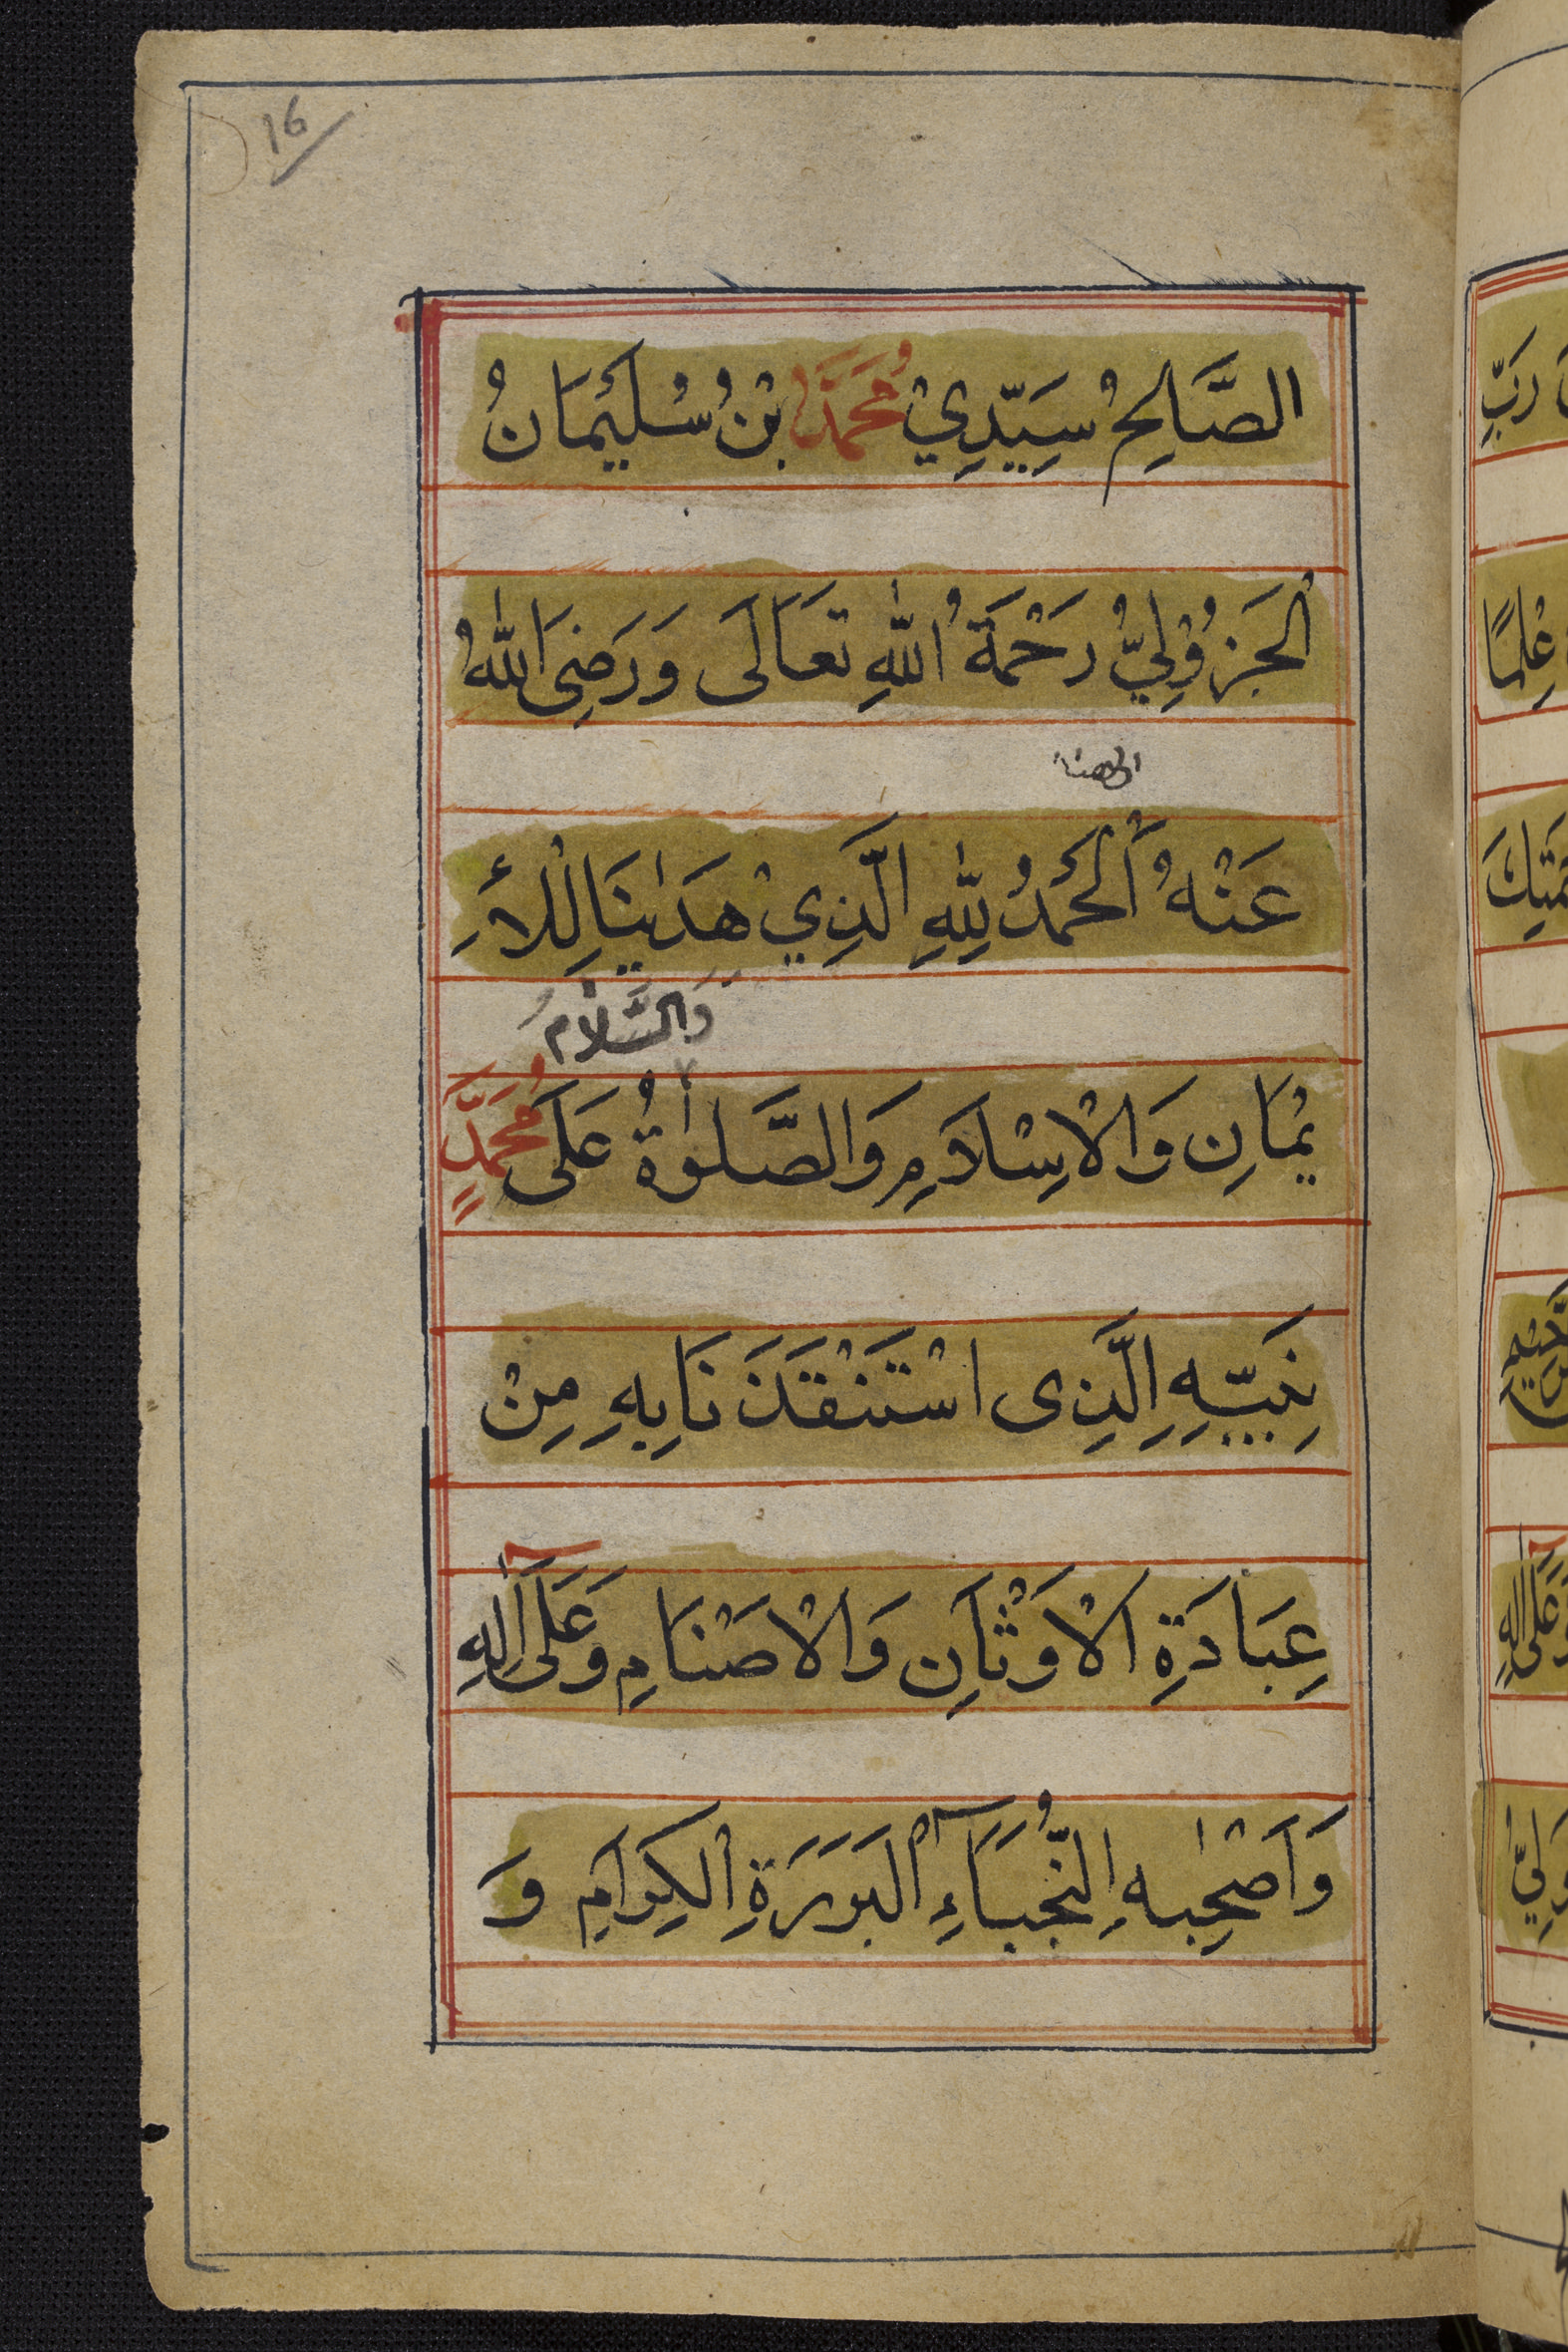 16
الصَّالِحُ سَيِّدِيْ مُحَمَّدُ ابْنُ سُلَيْمَانُ
الْجَزُوْلِيُّ رَحْمَةُ اللّٰهِ تَعَالَى وَرَضِىَ اللّٰهُ
عَنْهُ اَلْحَمْدُ لِلّٰهِ الَّذِيْ هَدٰينَا لِلْاِٴ
وَالسَّلَامُ
يْمَانِ وَالْاِسْلَامِ وَالصَّلٰوةُ عَلَى مُحَمَّدٍ
نَبِيِّهِ الَّذِى اسْتَنْقَذَنَا بِهِ مِنْ
عِبَادَةِ الْاَوْثَانِ وَالْاَصْنَامِ وَعَلَى اٰلِهِ
وَاَصْحٰبِهِ النُّجَبَآءِ الْبَرَرَةِ الْكِرَامِ وَ